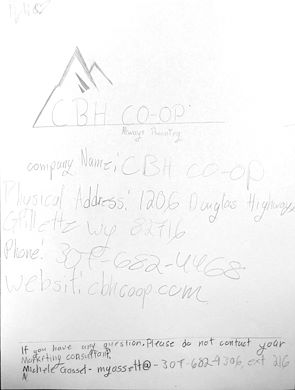 CBH CO-OP
Always Pointing
company Name: CBH CO-OP
Physical Address: 1206 Douglas Highway
Gillette wy 82716
Phone: 307-682-4468
Websit: cbhcoop.com
If you have any question, Please do not contact your
Marketing consultant,
Michele Gossel - myossett@ - 307-682-9306, ext 216